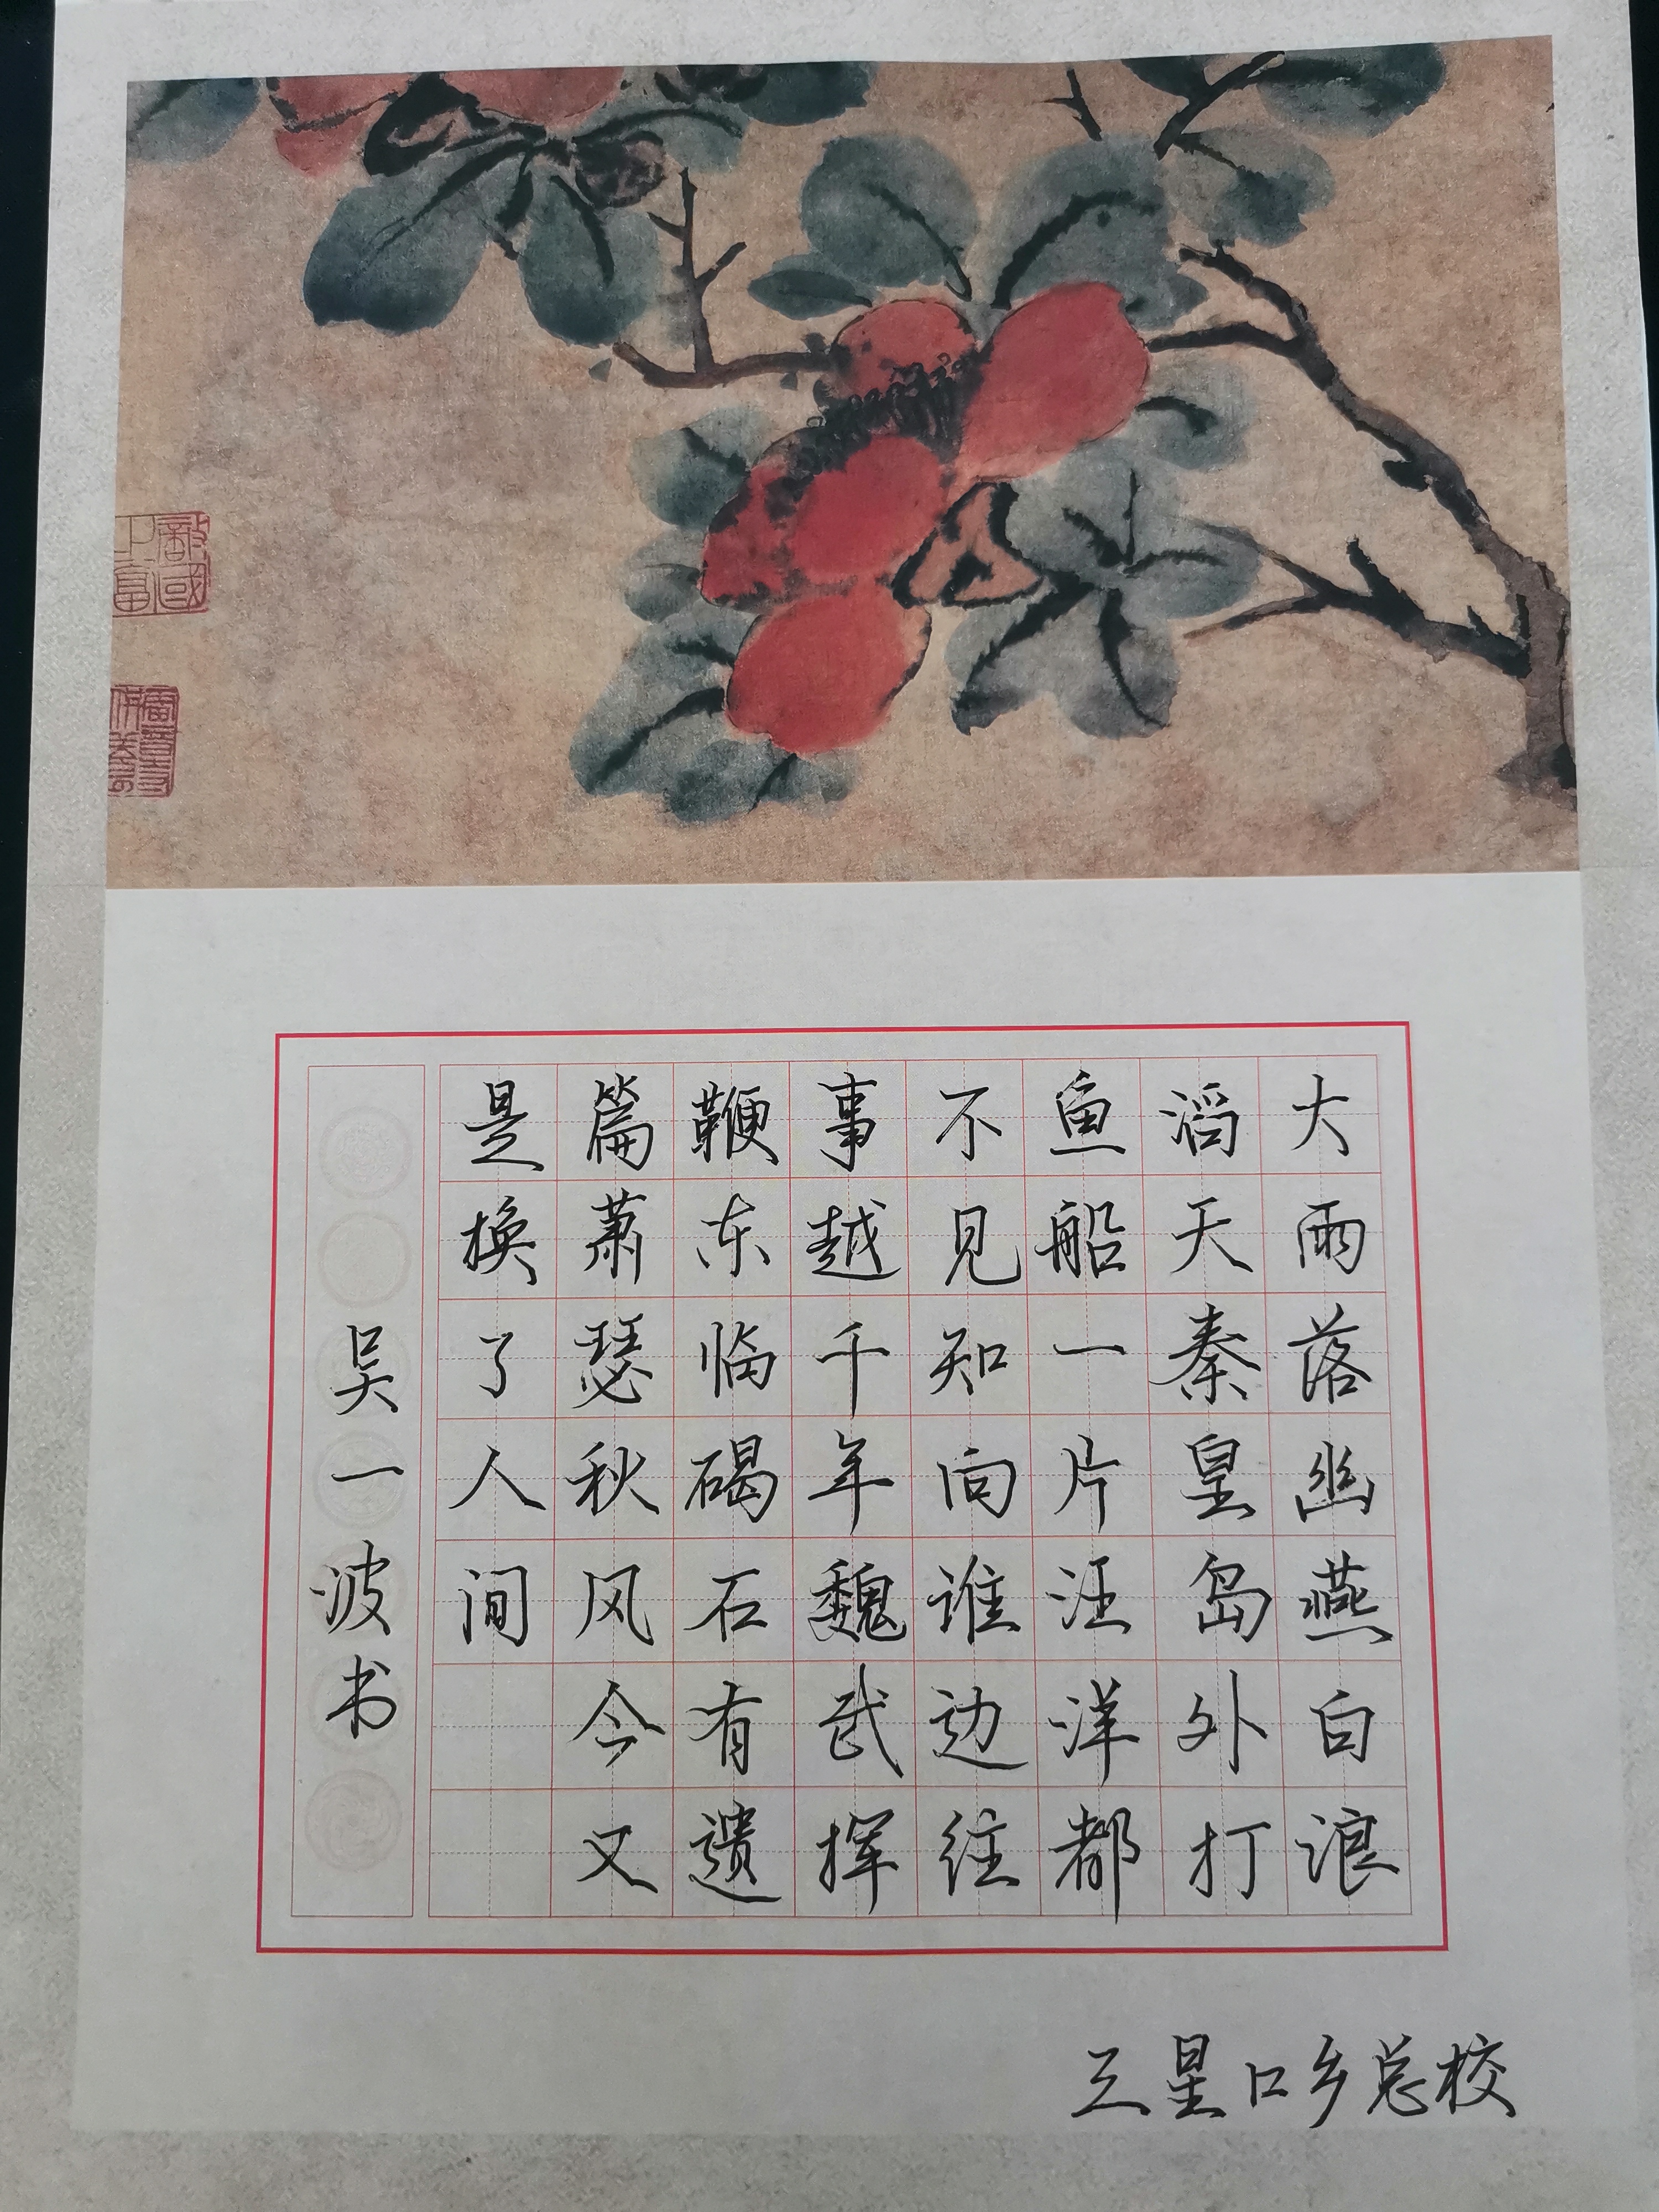 大雨落幽燕白浪
滔天秦皇岛外打
鱼船一片汪洋都
不见知向谁边往
事越千年魏武挥
鞭东临碣石有遗
篇萧瑟秋风今又
是换了人间
吴一波书
三星口乡总校